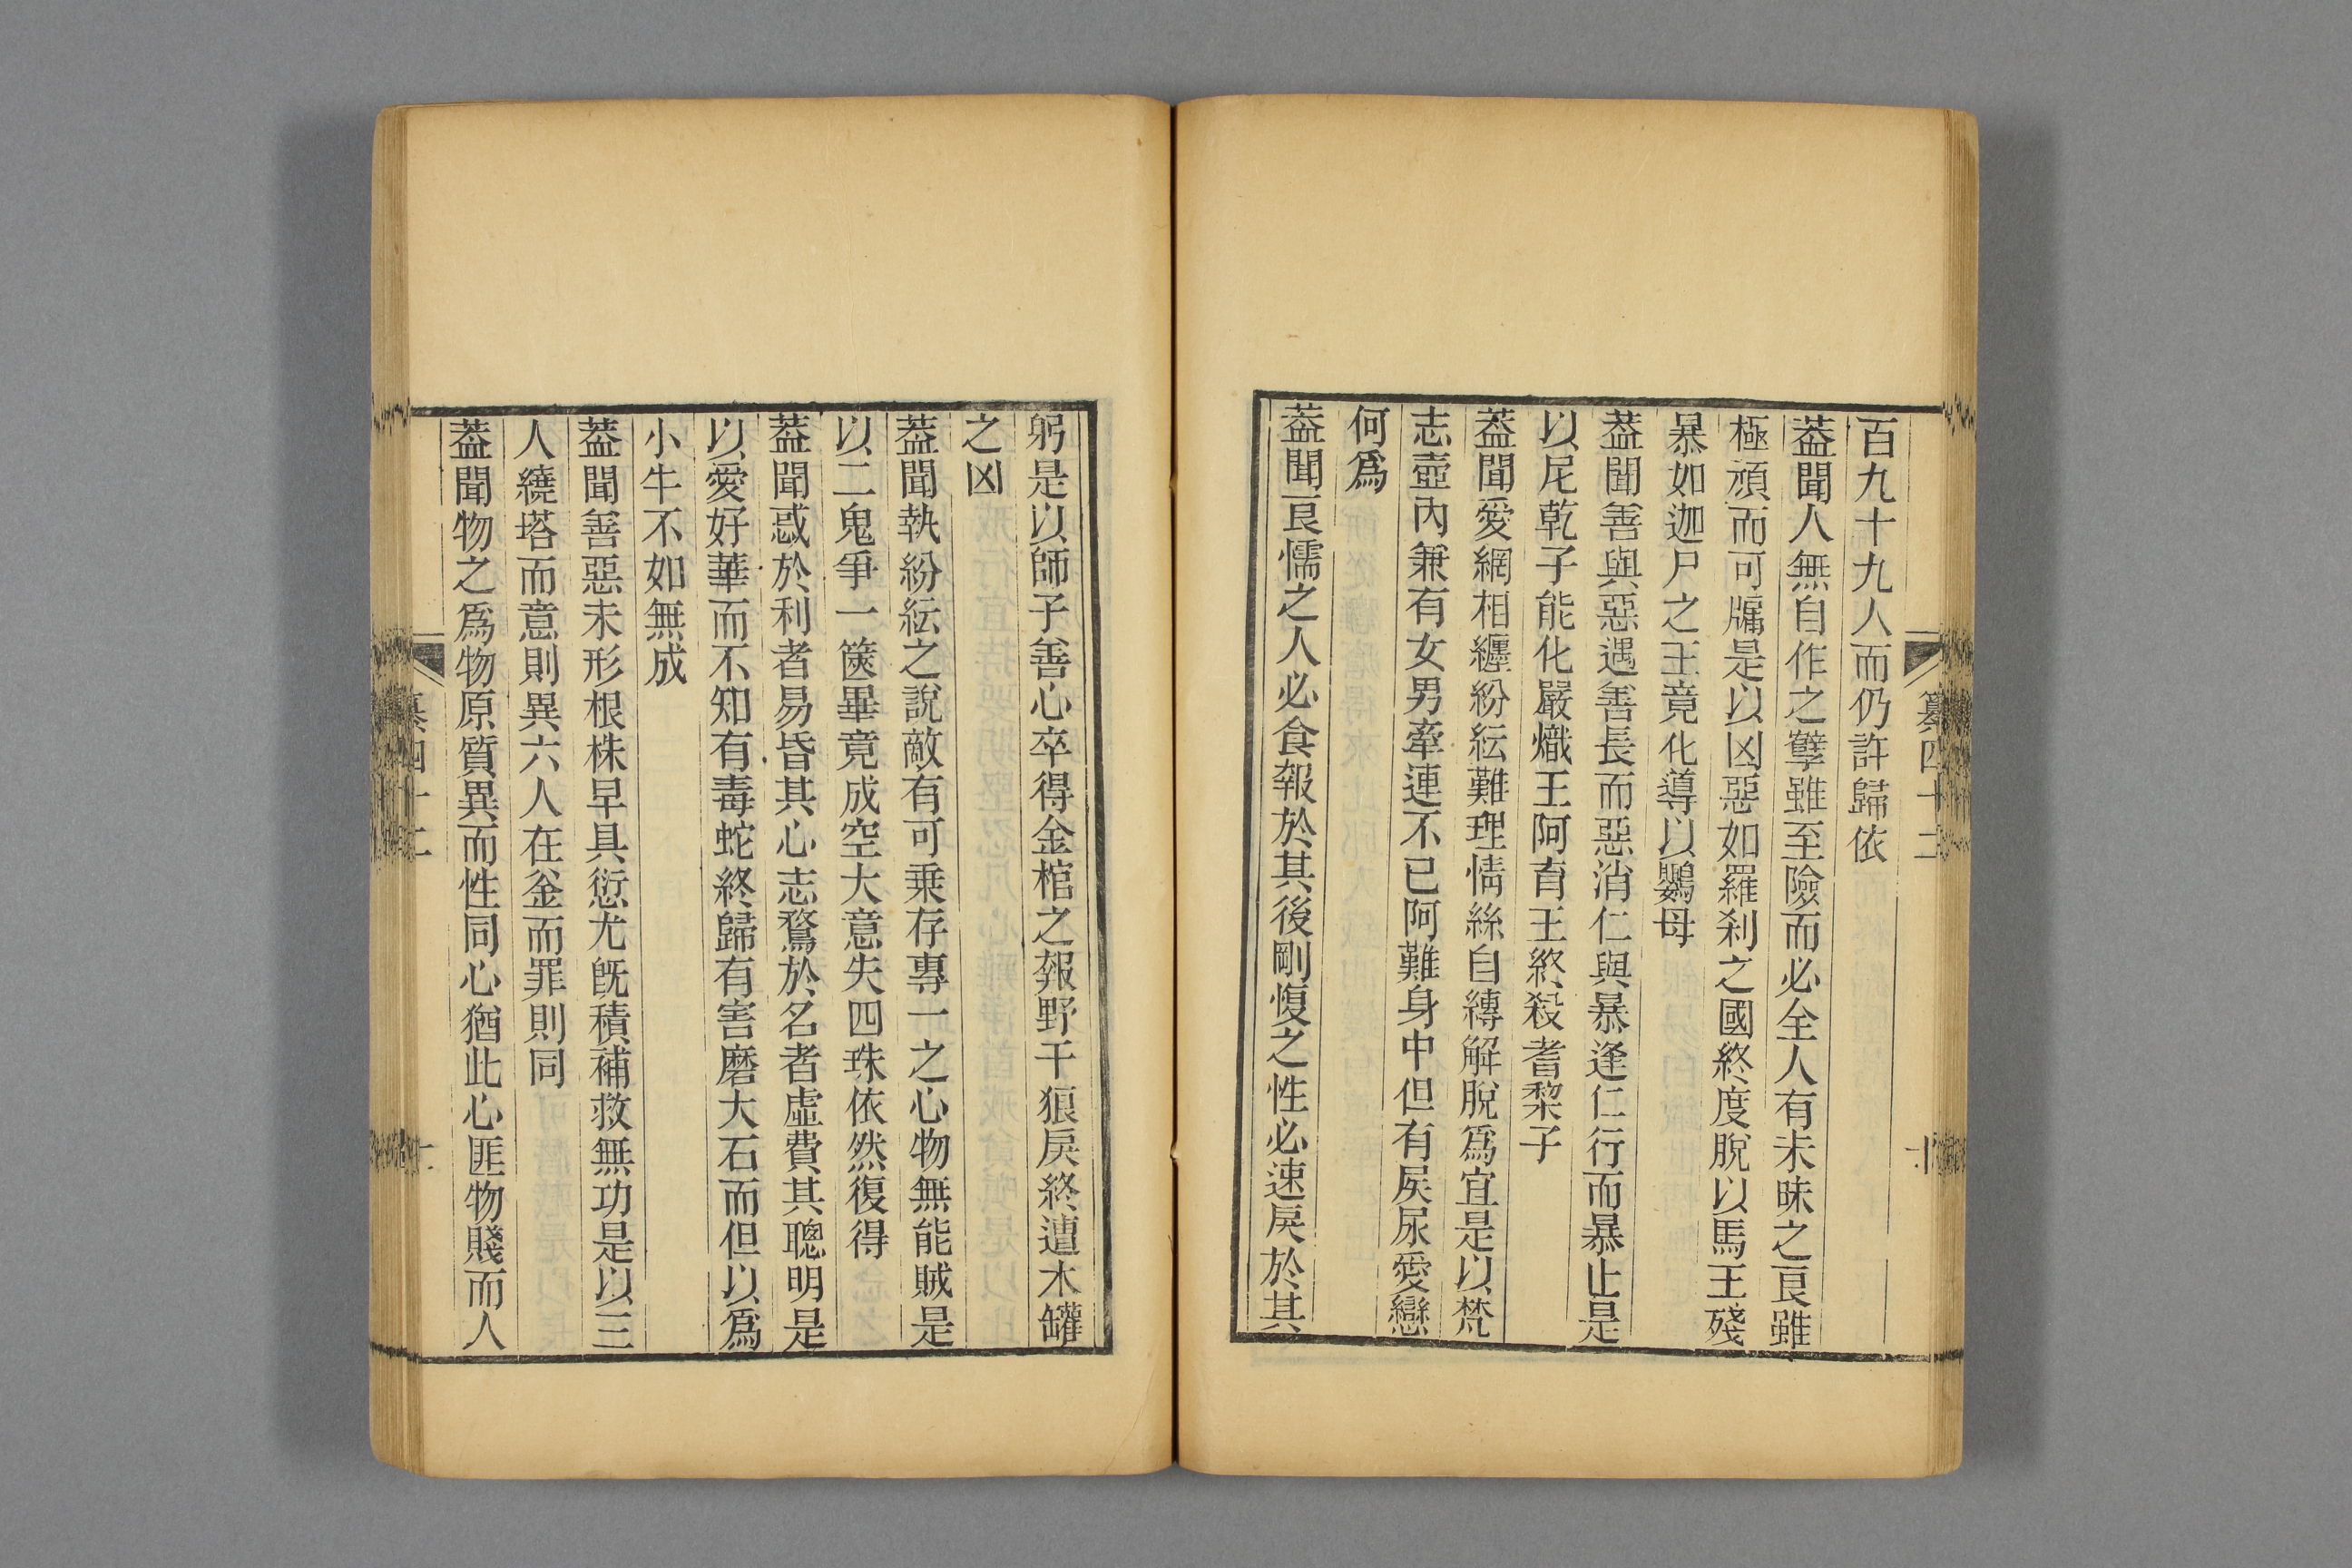 百九十九人而仍許歸依
葢聞人無自作之孽雖至險而必全人有未昧之良雖
極頑而可牖是以凶惡如羅刹之國終度脫以馬王殘
暴如迦尸之王竟化導以鸚母
葢聞善與惡遇善長而惡消仁與暴逢仁行而暴止是
以尼乾子能化嚴熾王阿育王終殺耆黎子
葢聞愛網相纏紛紜難理情絲自縛解脫爲宜是以梵
志壺內兼有女男牽連不已阿難身中但有屎尿愛戀
何爲
葢聞良懦之人必食報於其後剛愎之性必速戾於其
躬是以師子善心卒得金棺之報野干狼戾終遭木罐
之凶
葢聞執紛紜之說敵有可乘存專一之心物無能賊是
以二鬼爭一篋畢竟成空大意失四珠依然復得
葢聞惑於利者易昏其心志騖於名者虛費其聰明是
以愛好華而不知有毒蛇終歸有害磨大石而但以爲
小牛不如無成
葢聞善惡未形根株早具愆尤旣積補救無功是以三
人繞塔而意則異六人在釜而罪則同
葢聞物之爲物原質異而性同心猶此心匪物賤而人